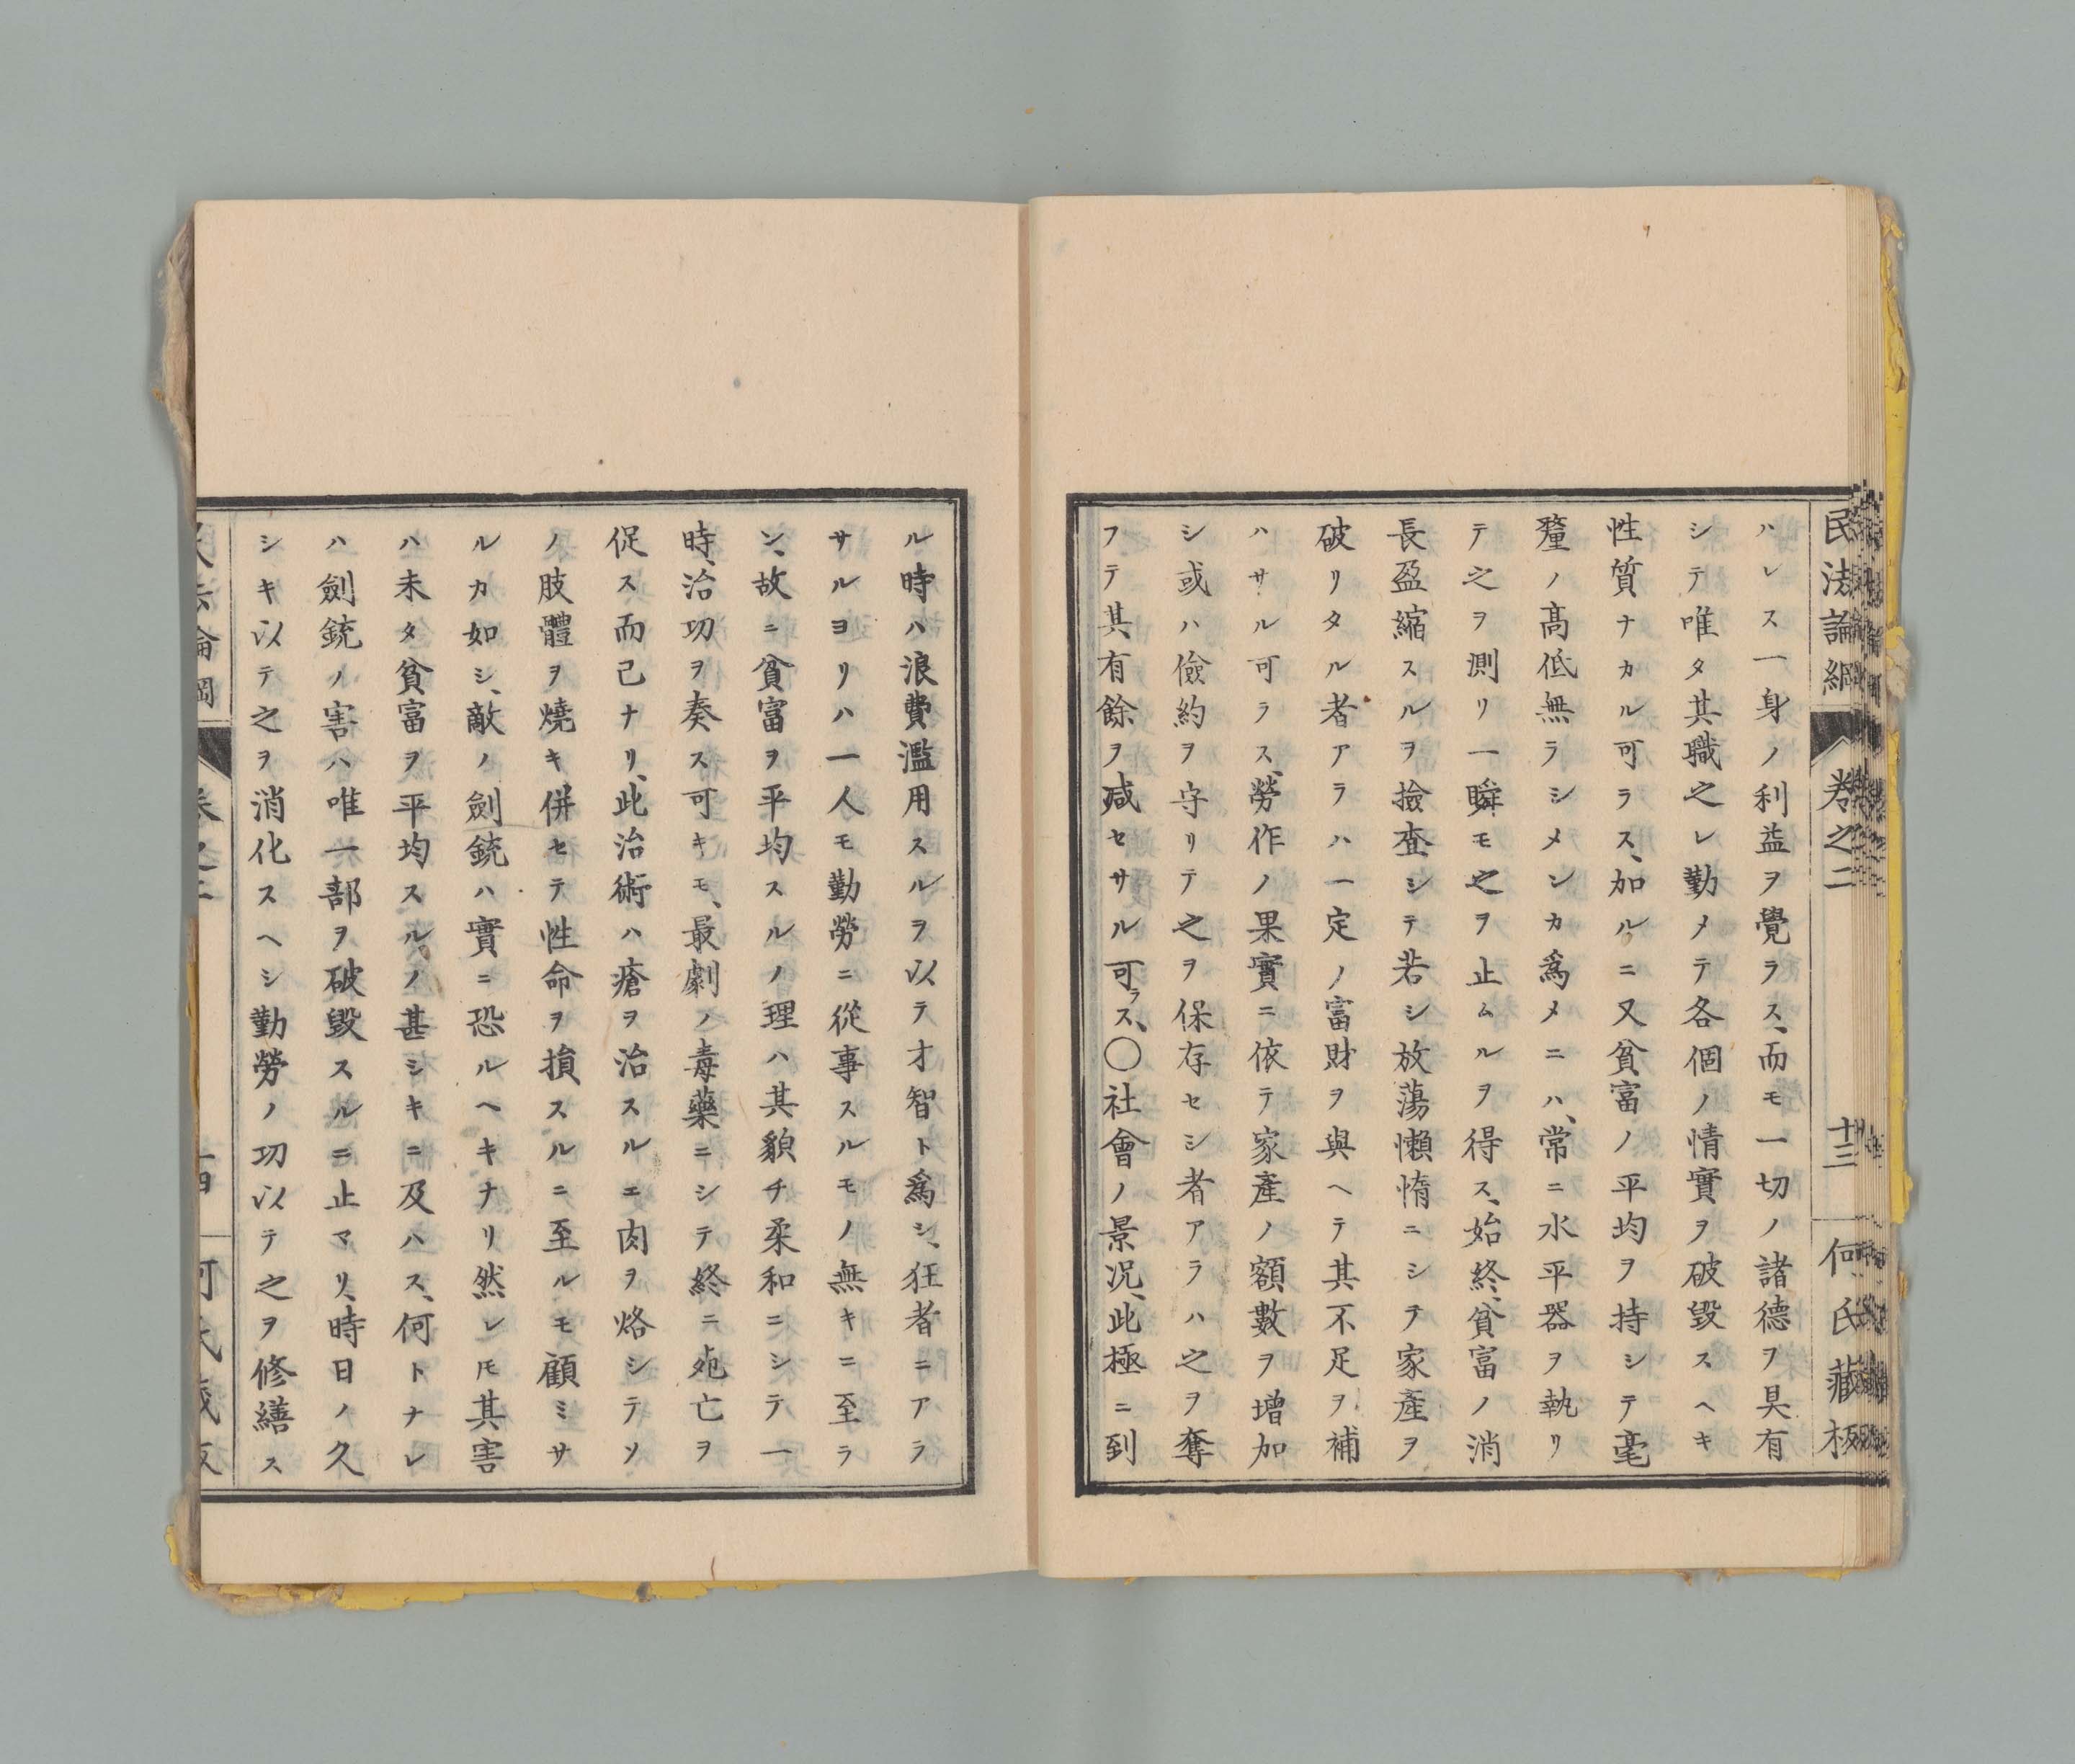 民法論綱 卷之二 十三 何氏藏板
ハレス一身ノ利益ヲ覺ラス、而モ一切ノ諸德ヲ具有
シテ唯タ其職之レ勤メテ各個ノ情實ヲ破毀スヘキ
性質ナカル可ラス、加ルニ又貧富ノ平均ヲ持シテ毫
釐ノ高低無ラシメンカ爲メニハ、常ニ水平器ヲ執リ
テ之ヲ測リ一瞬モ之ヲ止ムルヲ得ス、始終、貧富ノ消
長盈縮スルヲ撿查シテ若シ放蕩懶惰ニシテ家產ヲ
破リタル者アラハ一定ノ富財ヲ與ヘテ其不足ヲ補
ハサル可ラス、勞作ノ果實ニ依テ家產ノ額數ヲ增加
シ或ハ儉約ヲ守リテ之ヲ保存セシ者アラハ之ヲ奪
フテ其有餘ヲ减セサル可ラス、〇社會ノ景况、此極ニ到
ル時ハ浪費濫用スルヲ以テ才智ト爲シ、狂者ニアラ
サルヨリハ一人モ勤勞ニ從事スルモノ無キニ至ラ
ン、故ニ貧富ヲ平均スルノ理ハ其貌チ柔和ニシテ一
時、治功ヲ奏ス可キモ、最劇ノ毒藥ニシテ終ニ死亡ヲ
促ス而已ナリ、此治術ハ瘡ヲ治スルニ肉ヲ烙シテソ
ノ肢體ヲ燒キ併セテ性命ヲ損スルニ至ルモ顧ミサ
ルカ如シ、敵ノ劍銃ハ實ニ恐ルヘキナリ然レ𪜈其害
ハ未タ貧富ヲ平均スルノ甚シキニ及ハス、何トナレ
ハ劍銃ノ害ハ唯一部ヲ破毀スルニ止マリ、時日ノ久
シキ以テ之ヲ消化スヘシ勤勞ノ功以テ之ヲ修繕ス